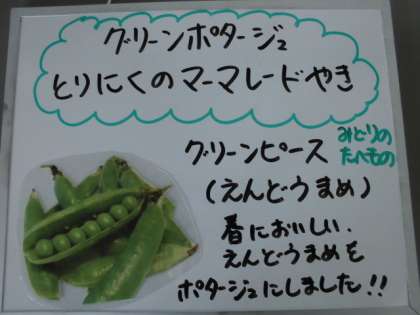 グリーンポタージュ
とりにくのマーマレードやき
グリーンピース
みどりの
たべもの
(えんどうまめ)
春においしい、
えんどうまめを
ポタージュにしました!!